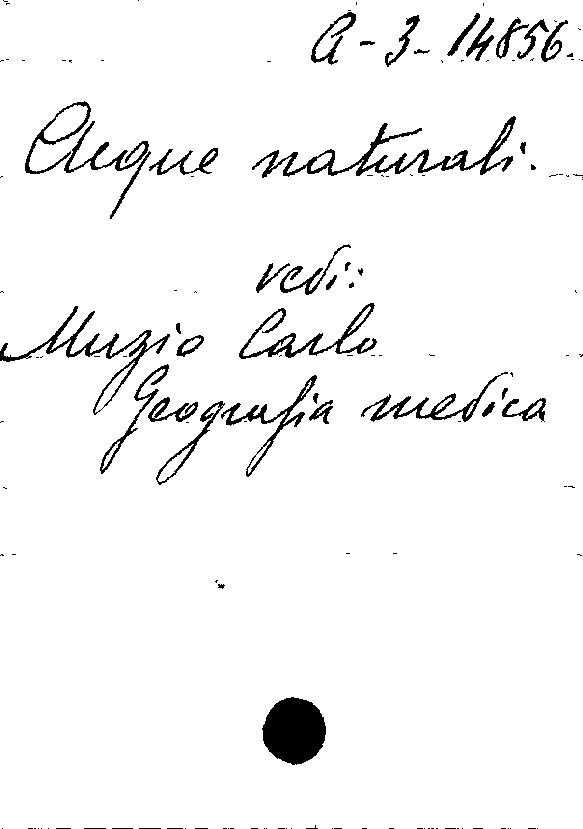 A-3-14856.
Acque naturali.
vedi:
Muzio Carlo
Geografia medica